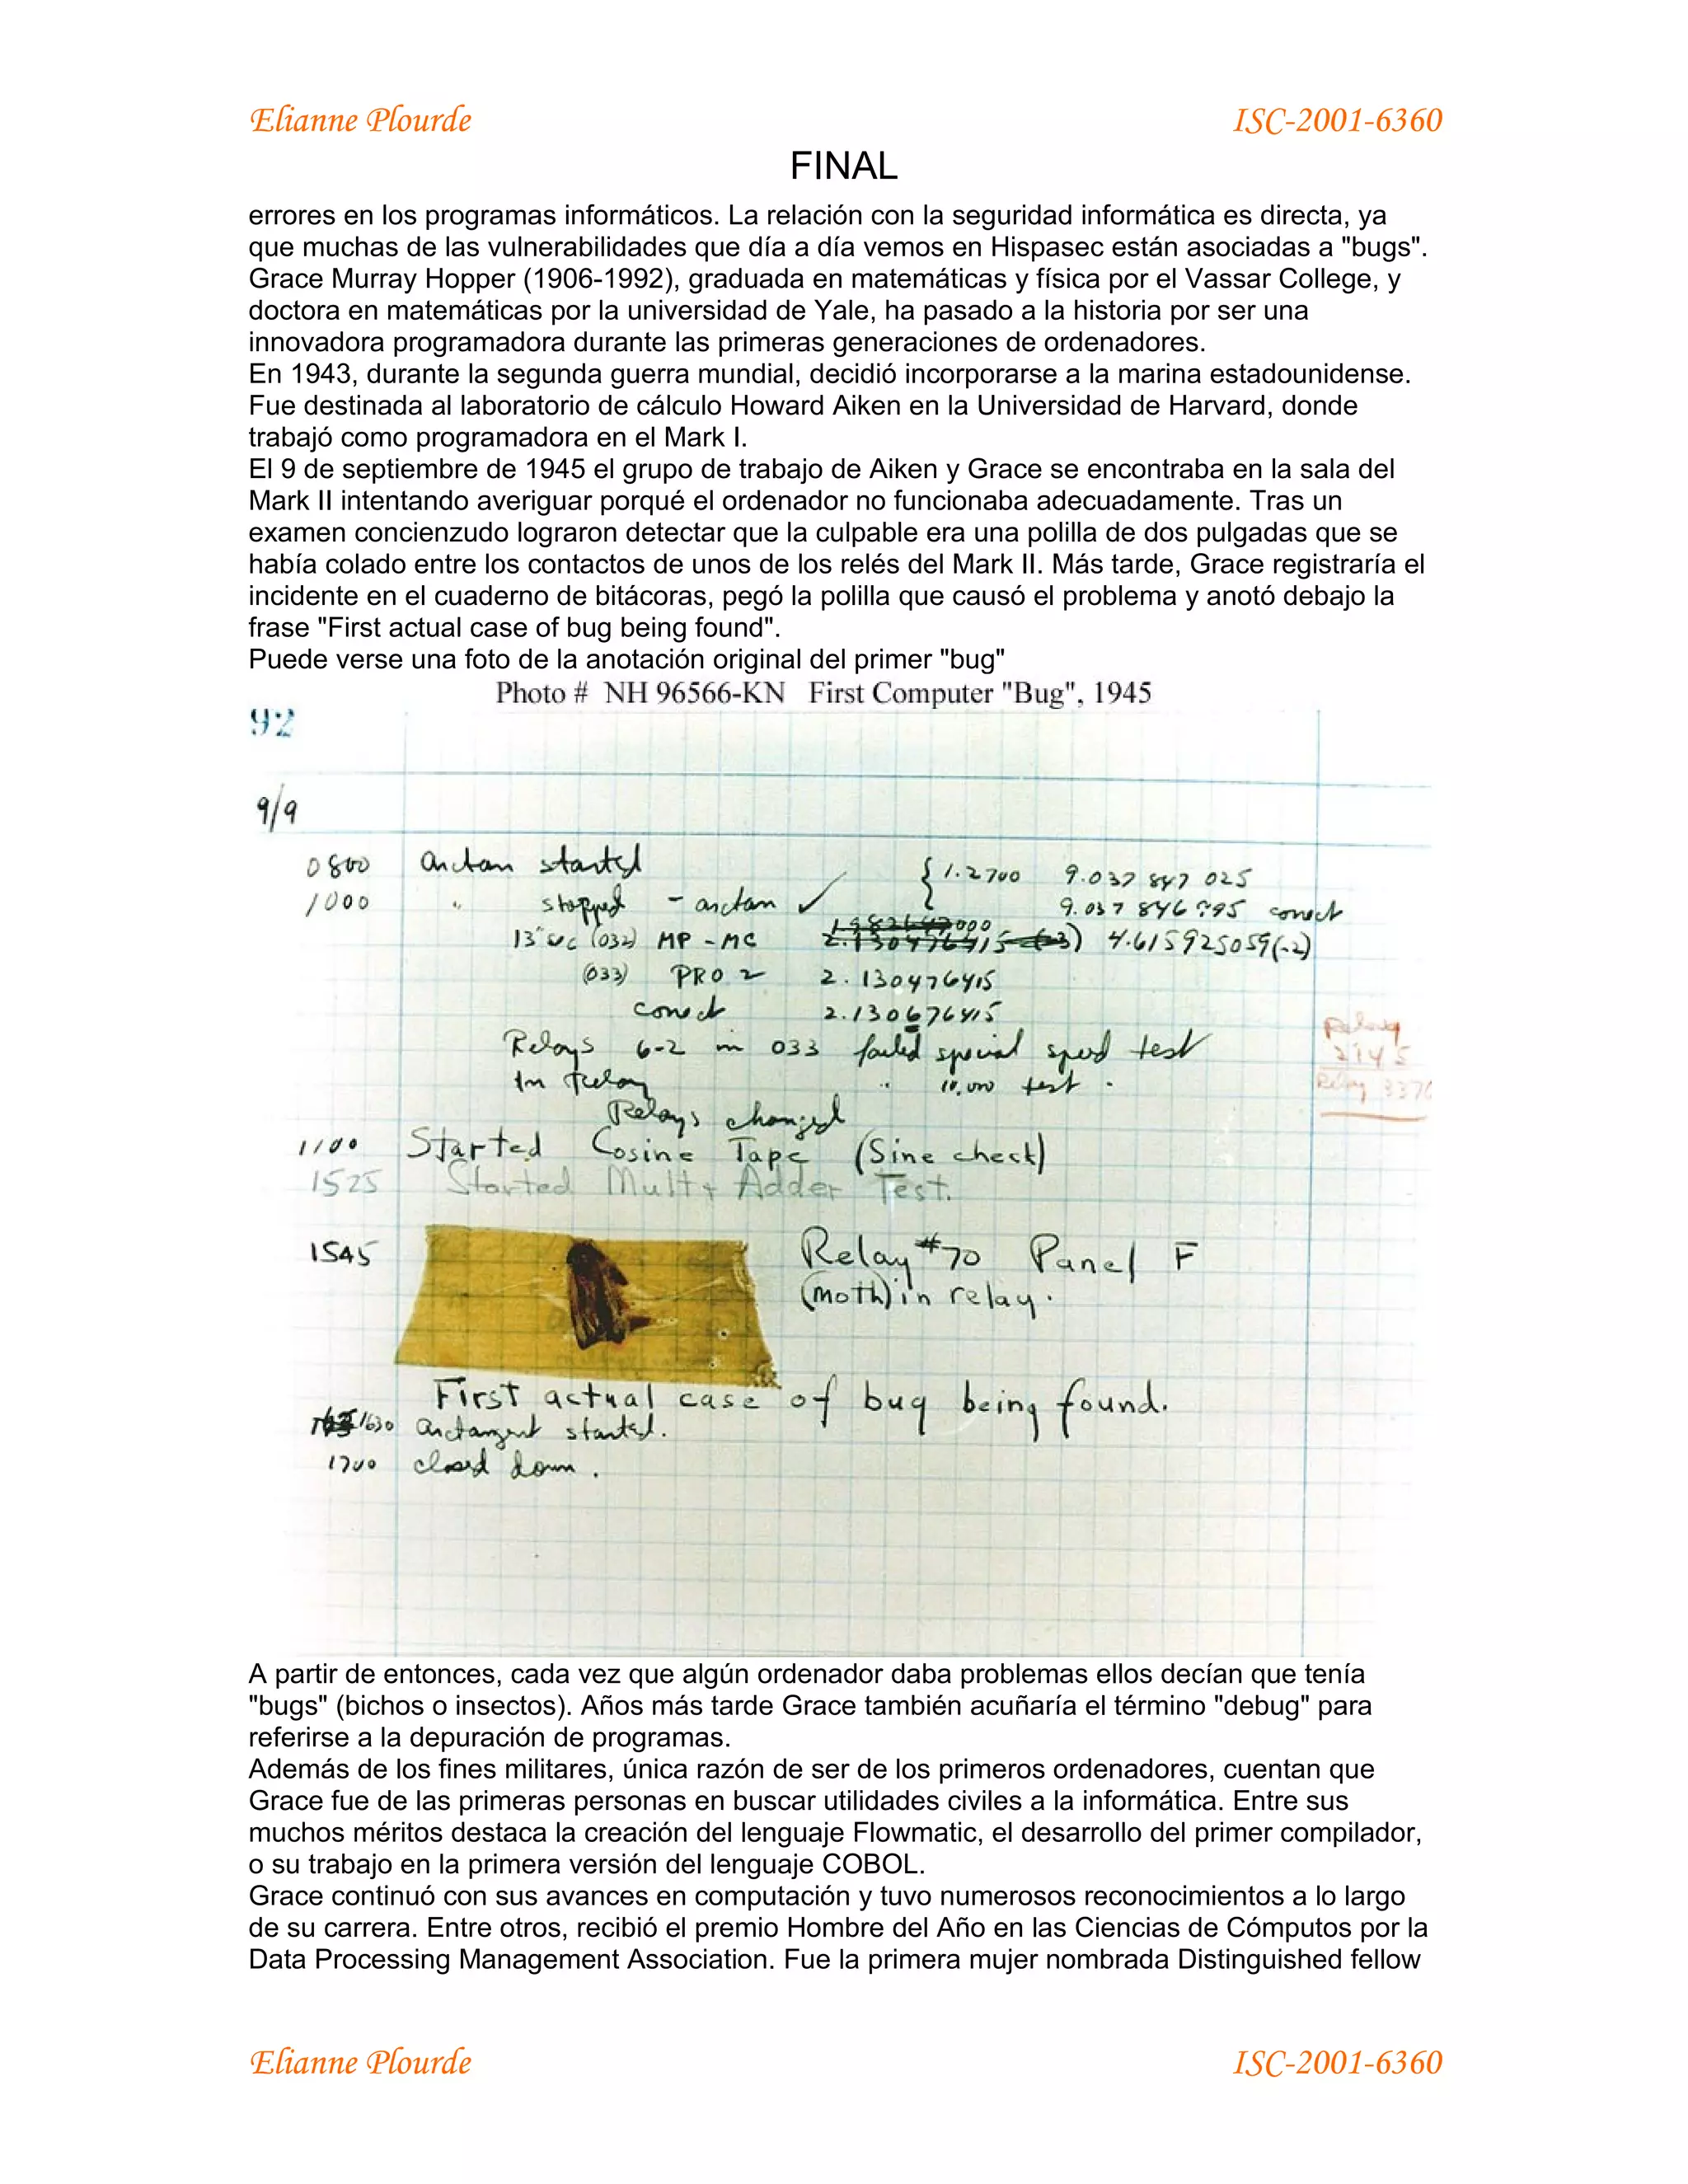 Elianne Plourde ISC-2001-6360
FINAL
errores en los programas informáticos. La relación con la seguridad informática es directa, ya
que muchas de las vulnerabilidades que día a día vemos en Hispasec están asociadas a "bugs".
Grace Murray Hopper (1906-1992), graduada en matemáticas y física por el Vassar College, y
doctora en matemáticas por la universidad de Yale, ha pasado a la historia por ser una
innovadora programadora durante las primeras generaciones de ordenadores.
En 1943, durante la segunda guerra mundial, decidió incorporarse a la marina estadounidense.
Fue destinada al laboratorio de cálculo Howard Aiken en la Universidad de Harvard, donde
trabajó como programadora en el Mark I.
El 9 de septiembre de 1945 el grupo de trabajo de Aiken y Grace se encontraba en la sala del
Mark II intentando averiguar porqué el ordenador no funcionaba adecuadamente. Tras un
examen concienzudo lograron detectar que la culpable era una polilla de dos pulgadas que se
había colado entre los contactos de unos de los relés del Mark II. Más tarde, Grace registraría el
incidente en el cuaderno de bitácoras, pegó la polilla que causó el problema y anotó debajo la
frase "First actual case of bug being found".
Puede verse una foto de la anotación original del primer "bug"
Photo # NH 96566-KN First Computer "Bug", 1945
92
9/9
0800 arctan started { 1.2700 9.037 847 025
1000 " stopped - arctan ✓ 9.037 846 995 correct
13"uc (032) MP-MC 4.615925059(-2)
(033) PRO 2 2.130476415
correct 2.130676415
Relays 6-2 in 033 failed special speed test
In relay " 10.000 test.
Relays changed
Relay
2145
Relay 3370
1100 Started Cosine Tape (Sine check)
1525 Started Mult+ Adder Test.
1545 Relay #70 Panel F
(moth) in relay.
First actual case of bug being found.
1630 arctangent started.
1700 closed down.
A partir de entonces, cada vez que algún ordenador daba problemas ellos decían que tenía
"bugs" (bichos o insectos). Años más tarde Grace también acuñaría el término "debug" para
referirse a la depuración de programas.
Además de los fines militares, única razón de ser de los primeros ordenadores, cuentan que
Grace fue de las primeras personas en buscar utilidades civiles a la informática. Entre sus
muchos méritos destaca la creación del lenguaje Flowmatic, el desarrollo del primer compilador,
o su trabajo en la primera versión del lenguaje COBOL.
Grace continuó con sus avances en computación y tuvo numerosos reconocimientos a lo largo
de su carrera. Entre otros, recibió el premio Hombre del Año en las Ciencias de Cómputos por la
Data Processing Management Association. Fue la primera mujer nombrada Distinguished fellow
Elianne Plourde ISC-2001-6360